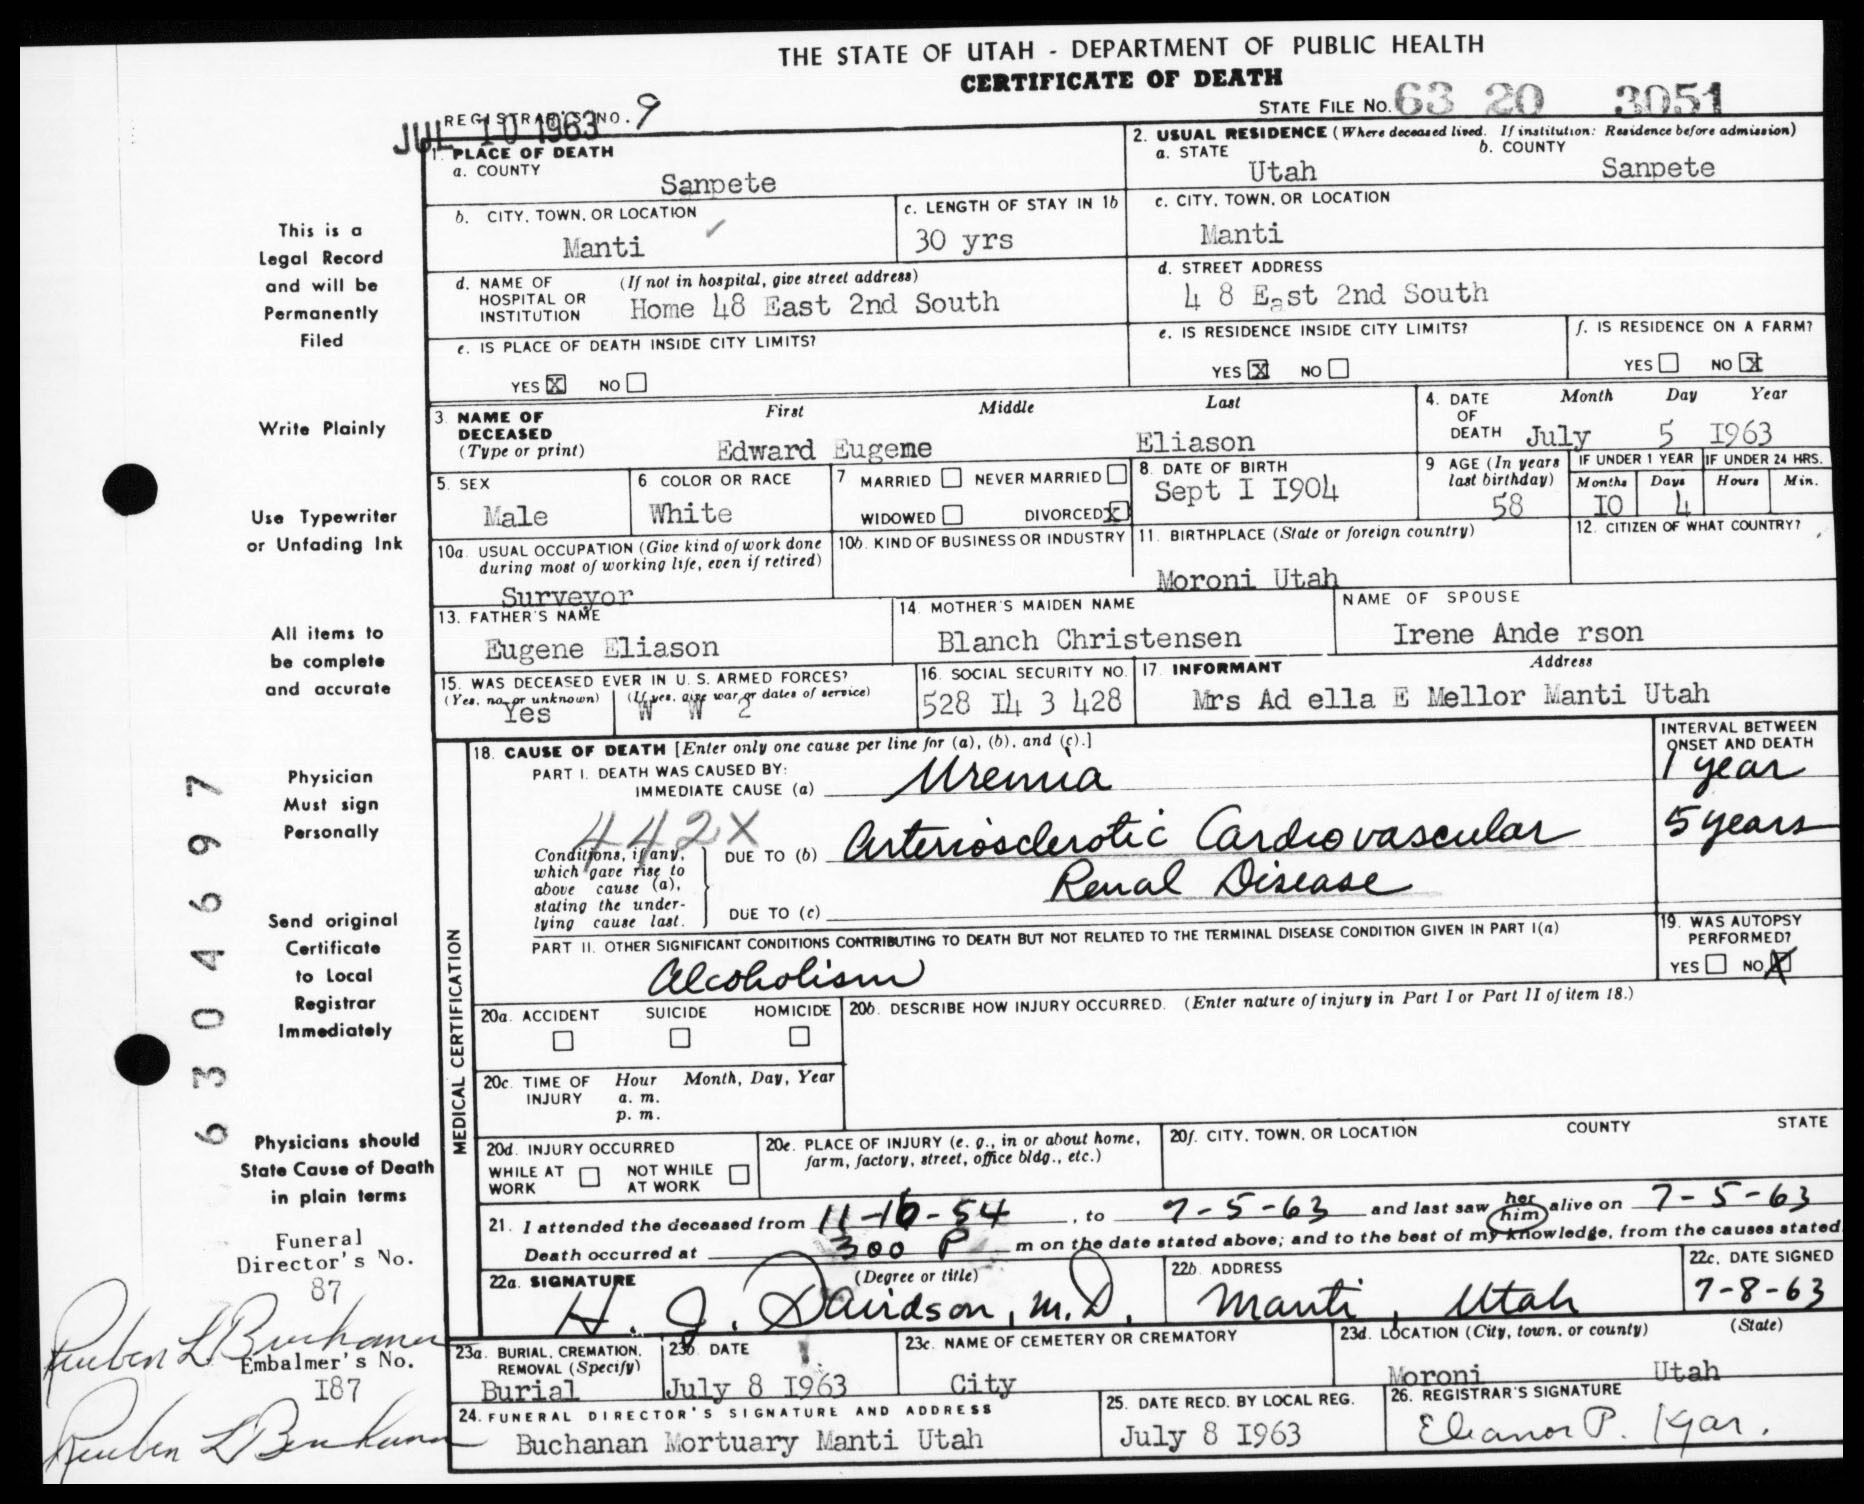 THE STATE OF UTAH - DEPARTMENT OF PUBLIC HEALTH
CERTIFICATE OF DEATH
STATE FILE NO. 63 20 3051
REGISTRAR'S NO. 9
JUL 10 1963
1. PLACE OF DEATH
a. COUNTY
Sanpete
2. USUAL RESIDENCE (Where deceased lived. If institution: Residence before admission)
a. STATE
Utah
b. COUNTY
Sanpete
b. CITY, TOWN, OR LOCATION
Manti
c. LENGTH OF STAY IN 1b
30 yrs
c. CITY, TOWN, OR LOCATION
Manti
d. NAME OF HOSPITAL OR INSTITUTION (If not in hospital, give street address)
Home 48 East 2nd South
d. STREET ADDRESS
4 8 East 2nd South
e. IS PLACE OF DEATH INSIDE CITY LIMITS?
YES X NO
e. IS RESIDENCE INSIDE CITY LIMITS?
YES X NO
f. IS RESIDENCE ON A FARM?
YES NO X
3 NAME OF DECEASED (Type or print)
First Middle Last
Edward Eugene Eliason
4. DATE OF DEATH
Month Day Year
July 5 I963
5. SEX
Male
6. COLOR OR RACE
White
7 MARRIED NEVER MARRIED
WIDOWED DIVORCED X
8. DATE OF BIRTH
Sept I I904
9 AGE (In years last birthday)
58
IF UNDER 1 YEAR
Months Days
I0 4
IF UNDER 24 HRS.
Hours Min.
10a. USUAL OCCUPATION (Give kind of work done during most of working life, even if retired)
Surveyor
10b. KIND OF BUSINESS OR INDUSTRY
11. BIRTHPLACE (State or foreign country)
Moroni Utah
12. CITIZEN OF WHAT COUNTRY?
13. FATHER'S NAME
Eugene Eliason
14. MOTHER'S MAIDEN NAME
Blanch Christensen
NAME OF SPOUSE
Irene Ande rson
15. WAS DECEASED EVER IN U. S. ARMED FORCES?
(Yes, no, or unknown) (If yes, give war or dates of service)
Yes W W 2
16. SOCIAL SECURITY NO.
528 I4 3 428
17. INFORMANT Address
Mrs Ad ella E Mellor Manti Utah
18. CAUSE OF DEATH [Enter only one cause per line for (a), (b), and (c).]
INTERVAL BETWEEN ONSET AND DEATH
PART I. DEATH WAS CAUSED BY:
IMMEDIATE CAUSE (a) Uremia 1 year
442X
Conditions, if any, which gave rise to above cause (a), stating the underlying cause last.
DUE TO (b) Arteriosclerotic Cardiovascular 5 years
Renal Disease
DUE TO (c)
PART II. OTHER SIGNIFICANT CONDITIONS CONTRIBUTING TO DEATH BUT NOT RELATED TO THE TERMINAL DISEASE CONDITION GIVEN IN PART I(a)
Alcoholism
19. WAS AUTOPSY PERFORMED?
YES NO X
MEDICAL CERTIFICATION
20a. ACCIDENT SUICIDE HOMICIDE
20b. DESCRIBE HOW INJURY OCCURRED. (Enter nature of injury in Part I or Part II of item 18.)
20c. TIME OF INJURY Hour Month, Day, Year
a. m.
p. m.
20d. INJURY OCCURRED
WHILE AT WORK NOT WHILE AT WORK
20e. PLACE OF INJURY (e. g., in or about home, farm, factory, street, office bldg., etc.)
20f. CITY, TOWN, OR LOCATION COUNTY STATE
21. I attended the deceased from 11-16-54, to 7-5-63 and last saw her him alive on 7-5-63
Death occurred at 300 P m on the date stated above; and to the best of my knowledge, from the causes stated
22a. SIGNATURE (Degree or title)
H. J. Davidson, M.D.
22b. ADDRESS
Manti, Utah
22c. DATE SIGNED
7-8-63
23a. BURIAL, CREMATION, REMOVAL (Specify)
Burial
23b. DATE
July 8 I963
23c. NAME OF CEMETERY OR CREMATORY
City
23d. LOCATION (City, town, or county) (State)
Moroni Utah
24. FUNERAL DIRECTOR'S SIGNATURE AND ADDRESS
Buchanan Mortuary Manti Utah
25. DATE RECD. BY LOCAL REG.
July 8 I963
26. REGISTRAR'S SIGNATURE
Eleanor P. Kjar.
This is a
Legal Record
and will be
Permanently
Filed
Write Plainly
Use Typewriter
or Unfading Ink
All items to
be complete
and accurate
Physician
Must sign
Personally
Send original
Certificate
to Local
Registrar
Immediately
Physicians should
State Cause of Death
in plain terms
6304697
Funeral
Director's No.
87
Reuben L Buchanan
Embalmer's No.
I87
Reuben L Buchanan